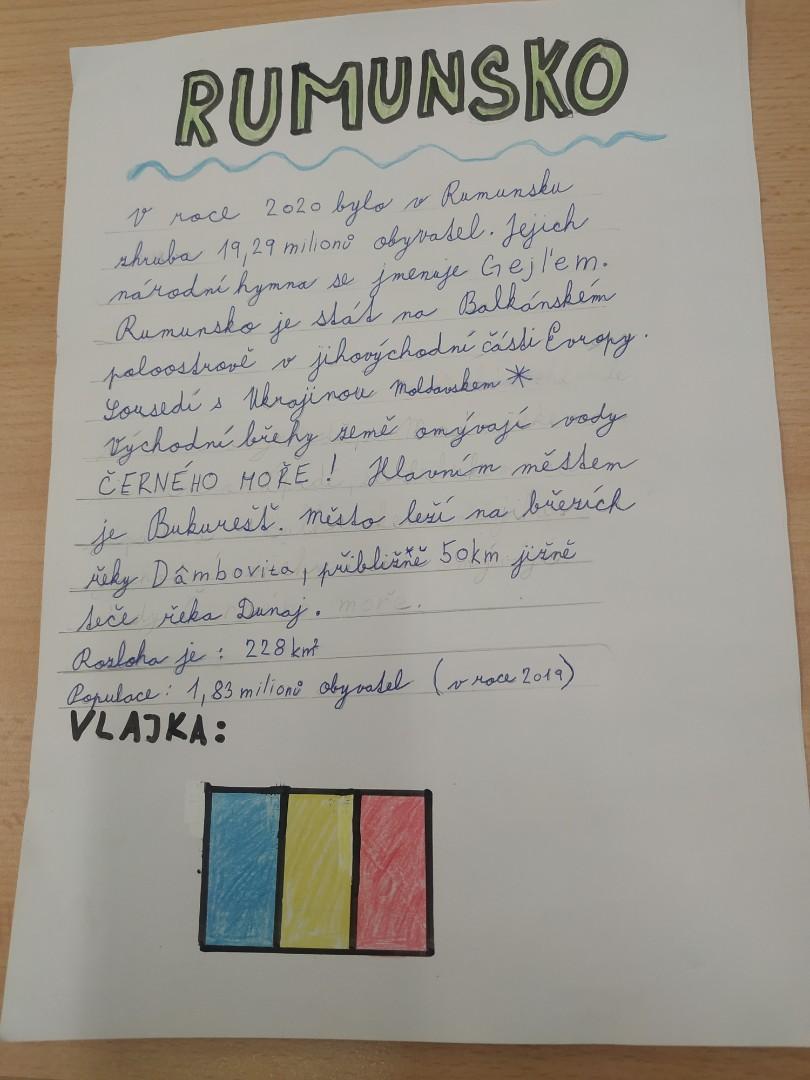 RUMUNSKO
V roce 2020 bylo v Rumunsku
zhruba 19,29 milionů obyvatel. Jejich
národní hymna se jmenuje Gejl'em.
Rumunsko je stát na Balkánském
poloostrově v jihovýchodní části Evropy.
Sousedí s Ukrajinou Moldavskem *
Východní břehy země omývají vody
ČERNÉHO MOŘE! Hlavním městem
je Bukurešť. Město leží na březích
řeky Dâmbovita, přibližně 50km jižně
teče řeka Dunaj.
Rozloha je: 228 km²
Populace: 1,83 milionů obyvatel (v roce 2019)
VLAJKA: